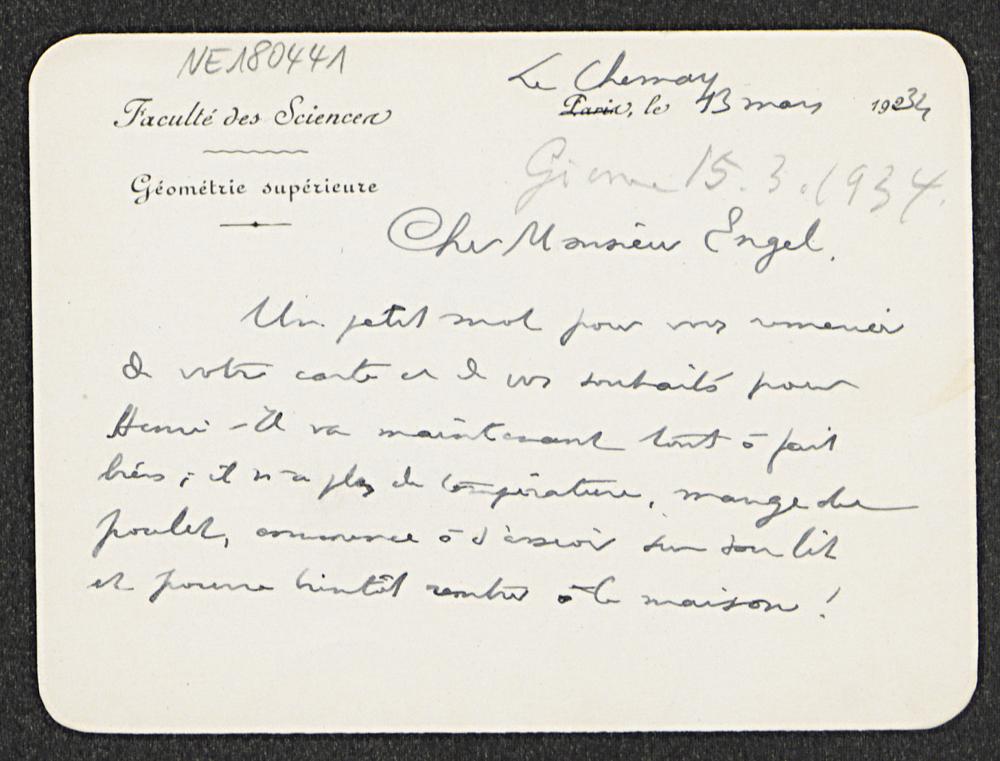 NE180441
Le Chesnay
Faculté des Sciences
Paris, le 13 mars 1934
Géométrie supérieure
15.3.1934.
Cher Monsieur Engel,
Un petit mot pour vous remercier
de votre carte et de vos souhaits pour
Henri - Il va maintenant tout à fait
bien ; il n'a plus de température, mange du
poulet, commence à s'asseoir sur son lit
et pourra bientôt rentrer à la maison !